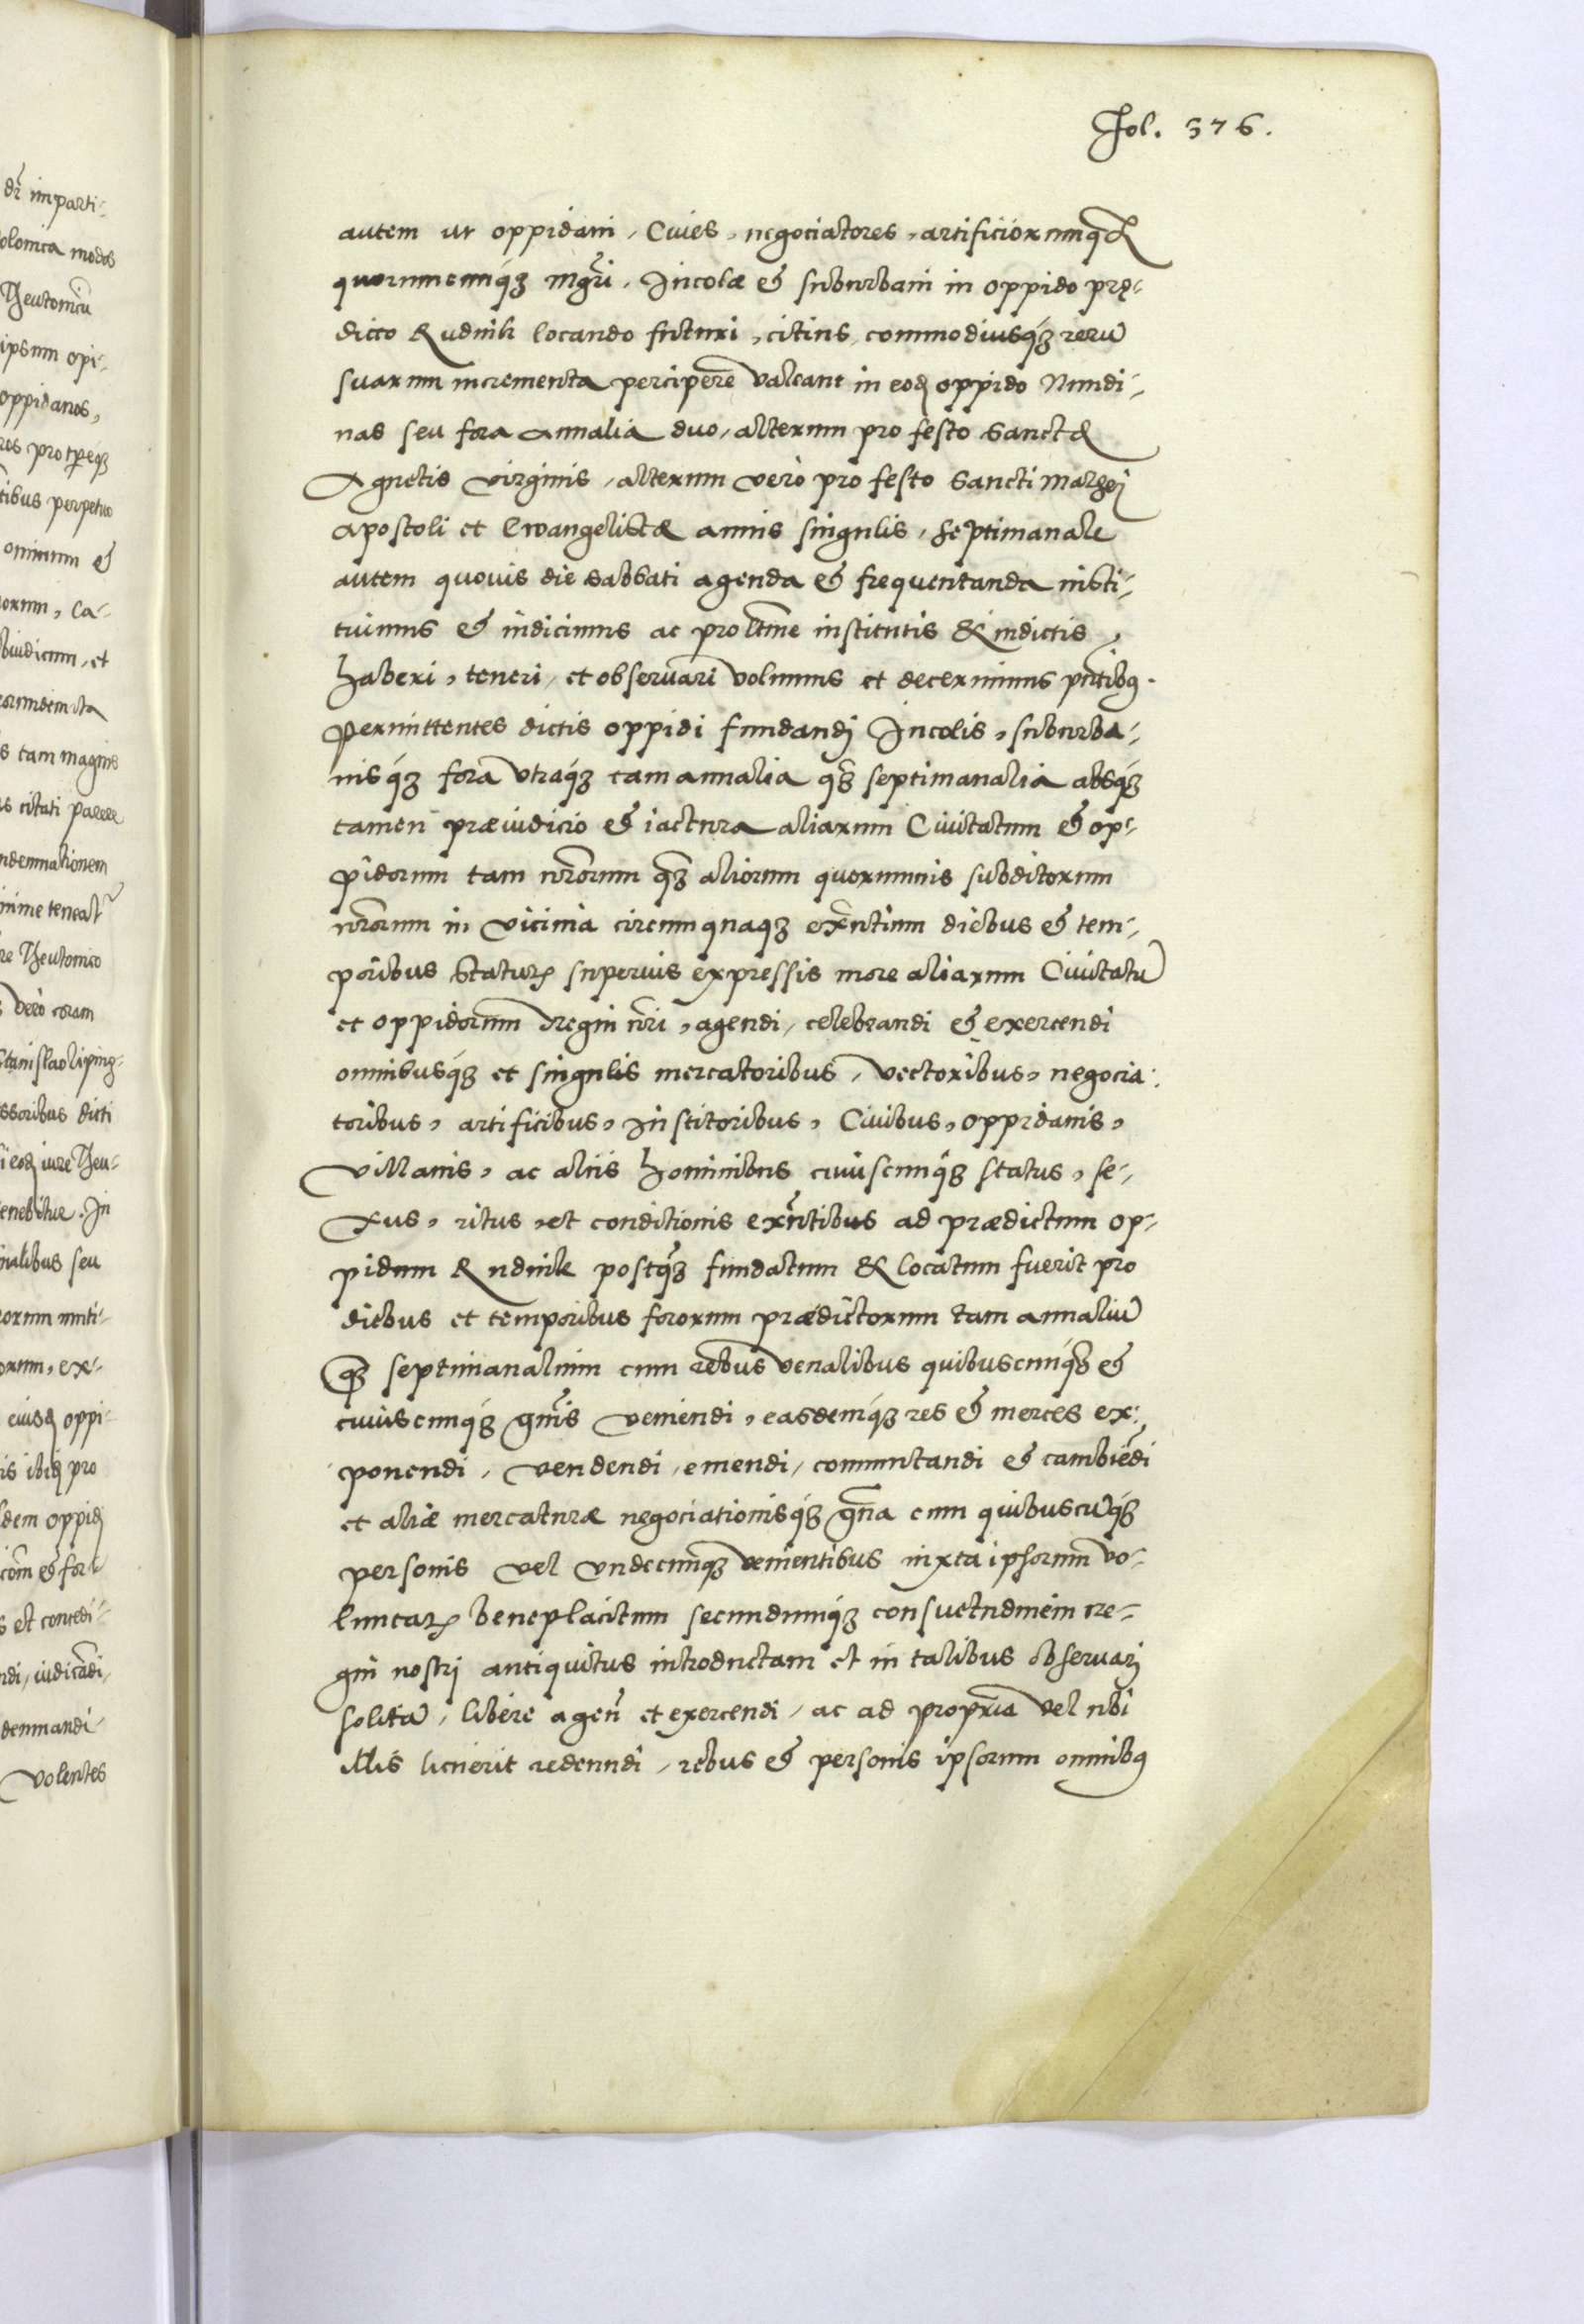 Fol. 376.
autem ut oppidani, Cives, negociatores, artificiorumq́ꝫ
quorumcunq́ꝫ mgr̃i, Incolæ & suburbani in oppido prę-
dicto Rudnik locando futuri, citius, commodiusq́ꝫ rerũ
suarum incrementa percipere valeant in eod oppido Nundi-
nas seu fora annalia duo, alterum pro festo Sanctæ
Agnetis virginis, alterum vero pro festo Sancti Mathei
apostoli et Ewangelistæ annis singulis, septimanale
autem quovis die sabbati agenda & frequentanda insti-
tuimus & indicimus ac pro ltme institutis & indictis,
haberi, teneri, et observari volumus et decernimus pñtibus.
Permittentes dictis oppidi fundandi Incolis, suburba-
nisq́ꝫ fora utraq́ꝫ tam annalia q̃ꝫ septimanalia absq́ꝫ
tamen præiudicio & iactura aliarum Civitatum & op-
pidorum tam nr̃orum q̃ꝫ aliorum quorumvis subditorum
nr̃orum in vicinia circumquaqꝫ exñtium diebus & tem-
poribus statutꝫ superius expressis more aliarum Civitatũ
et oppidorum regni nr̃i, agendi, celebrandi & exercendi
omnibusq́ꝫ et singulis mercatoribus, vectoribus, negocia-
toribus, artificibus, institoribus, Civibus, oppidanis,
villanis, ac aliis hominibus cuiuscunq́ꝫ status, se-
xus, ritus, et conditionis exñtibus ad prædictum op-
pidum Rudnik postq̃ꝫ fundatum & locatum fuerit pro
diebus et temporibus fororum prædictorum tam annaliũ
q̃ꝫ septimanalium cum rebus venalibus quibuscunq́ꝫ &
cuiuscunq́ꝫ gñis veniendi, easdemq́ꝫ res & merces ex-
ponendi, vendendi, emendi, commutandi & cambiẽdi
et aliæ mercaturæ negociationisq́ꝫ gña cum quibuscũq́ꝫ
personis vel undecunqꝫ venientibus iuxta ipsorum vo-
luntatꝫ beneplacitum secundumq́ꝫ consuetudinem re-
gni nostri antiquitus introductam et in talibus observari
solitã, libere agen̄ et exercendi, ac ad propria vel ubi
illis licuerit redeundi, rebus & personis ipsorum omnibus